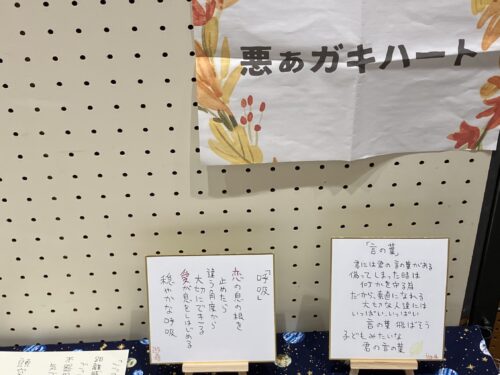 悪あガキハート
「呼吸」
恋の息の根を
止めたら
違う角度から
大切にできる
愛が息をしはじめる
穏やかな呼吸
「言の葉」
君には君の言の葉がある
偽ってしまった時は
何かを守る盾
だから、素直になれる
大切な人達には
いっぱいいっぱい
言の葉 飛ばそう
子どもみたいな
君の言の葉